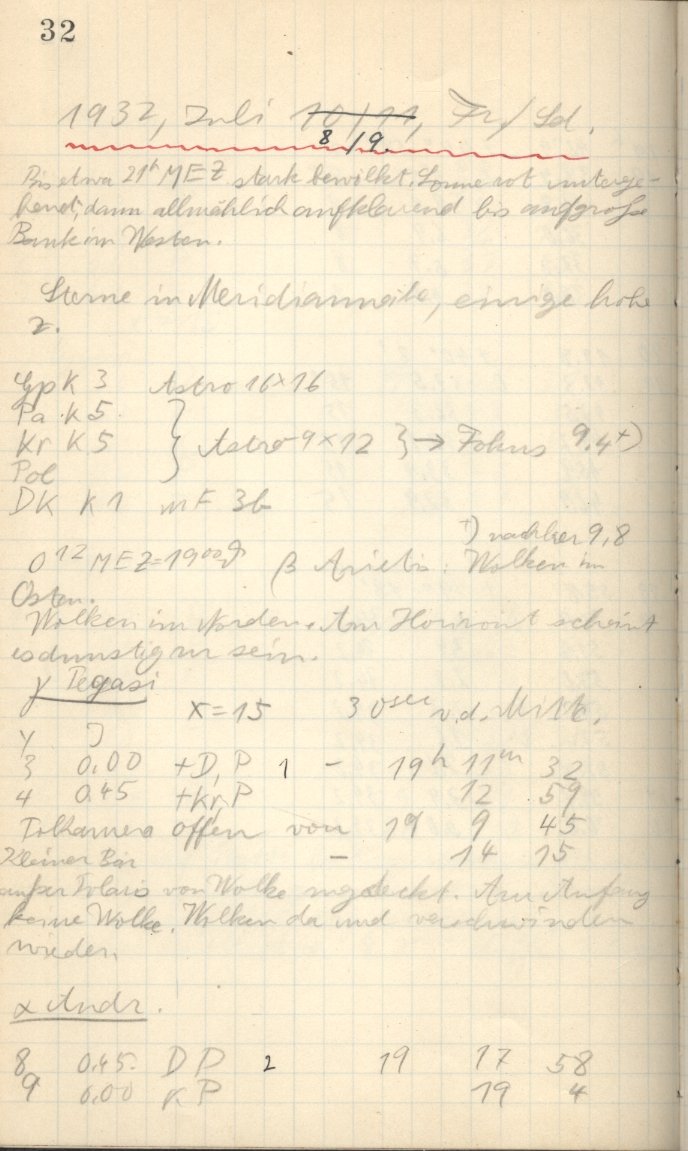 32
1932, Juli 10/11, Fr/Sd.
8/9.
Bis etwa 21h MEZ stark bewölkt. Sonne rot unterge-
hend; dann allmählich aufklarend bis auf große
Bank im Westen.
Sterne in Meridiannähe, einige hohe
z.
K 3 Astro 16x16
Pa. K 5.
Kr K 5 } Astro-9x12 } → Fokus 9.4+)
Pol
DK K 1 mF 36
+) nachher 9,8
0 12 MEZ=19 00 β Arietis: Wolken im
Osten.
Wolken im Norden. Am Horizont scheint
es dunstig zu sein.
γ Pegasi
x=15 30sec v.d. Mitte.
Y J
3 0,00 +D, P 1 - 19h 11m 32
4 0.45 +Kr, P 12 59
Polkamera offen von 19 9 45
Kleiner Bär - 14 15
außer Polaris von Wolke zugedeckt. Am Anfang
keine Wolke. Wolken da und verschwinden
wieder.
α Andr.
8 0.45. D P 2 19 17 58
9 0.00 K P 19 4